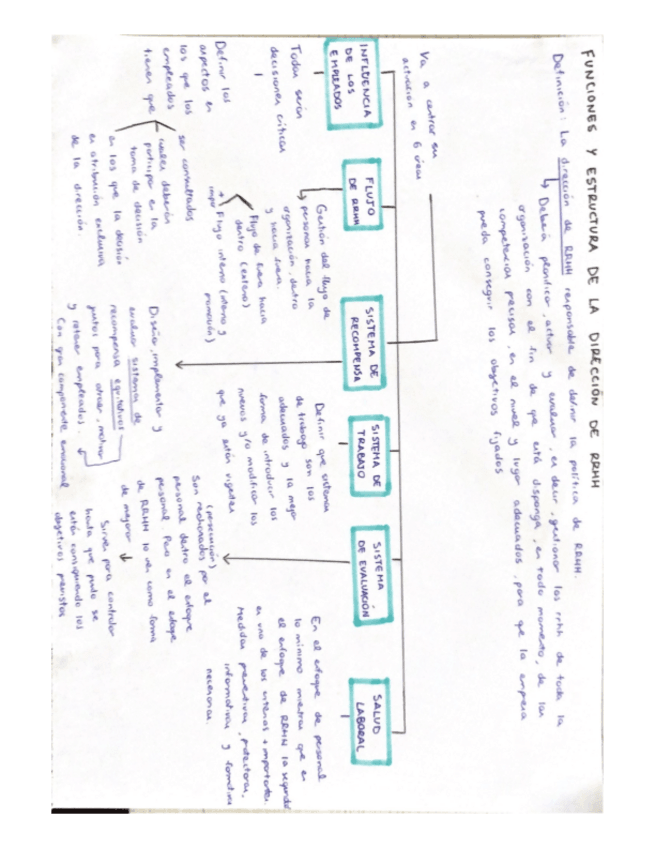 FUNCIONES Y ESTRUCTURA DE LA DIRECCIÓN DE RRHH
Definición: La dirección de RRHH responsable de definir la política de RRHH.
↳ Deberá planificar, activar y evaluar, es decir, gestionar los rrhh de toda la
organización con el fin de que está disponga, en todo momento, de las
competencias precisas, en el nivel y lugar adecuados, para que la empresa
pueda conseguir los objetivos fijados
Va a centrar su
actuación en 6 áreas
INFLUENCIA
DE LOS
EMPLEADOS
Todas serán
decisiones críticas
Definir los
aspectos en
los que los
empleados
tienen que
ser consultados
cuales deberán
participar en la
toma de decisión
en los que la decisión
es atribución exclusiva
de la dirección.
FLUJO
DE RRHH
Gestión del flujo de
personas hacia la
organización, dentro
y hacia fuera.
Flujo de fuera hacia
dentro (externo)
+ Flujo interno (interno y
impo promoción)
SISTEMA DE
RECOMPENSA
Diseñar, implementar y
evaluar sistemas de
recompensa equitativos
justos para atraer, motivar
y retener empleados.
Con gran componente emocional
SISTEMA DE
TRABAJO
Definir que sistemas
de trabajo son los
adecuados y la mejor
forma de introducir los
nuevos y/o modificar los
que ya están vigentes
SISTEMA
DE EVALUACIÓN
(persecución)
Son rechazados por el
personal dentro el enfoque
personal. Pero en el enfoque
de RRHH lo ven como forma
de mejorar
Sirven para controlar
hasta que punto se
están consiguiendo los
objetivos previstos
SALUD
LABORAL
En el enfoque de personal
lo mínimo mientras que en
el enfoque de RRHH la seguridad
es uno de los criterios + importantes.
Medidas preventivas, protectoras,
informativas y formativas
necesarias.